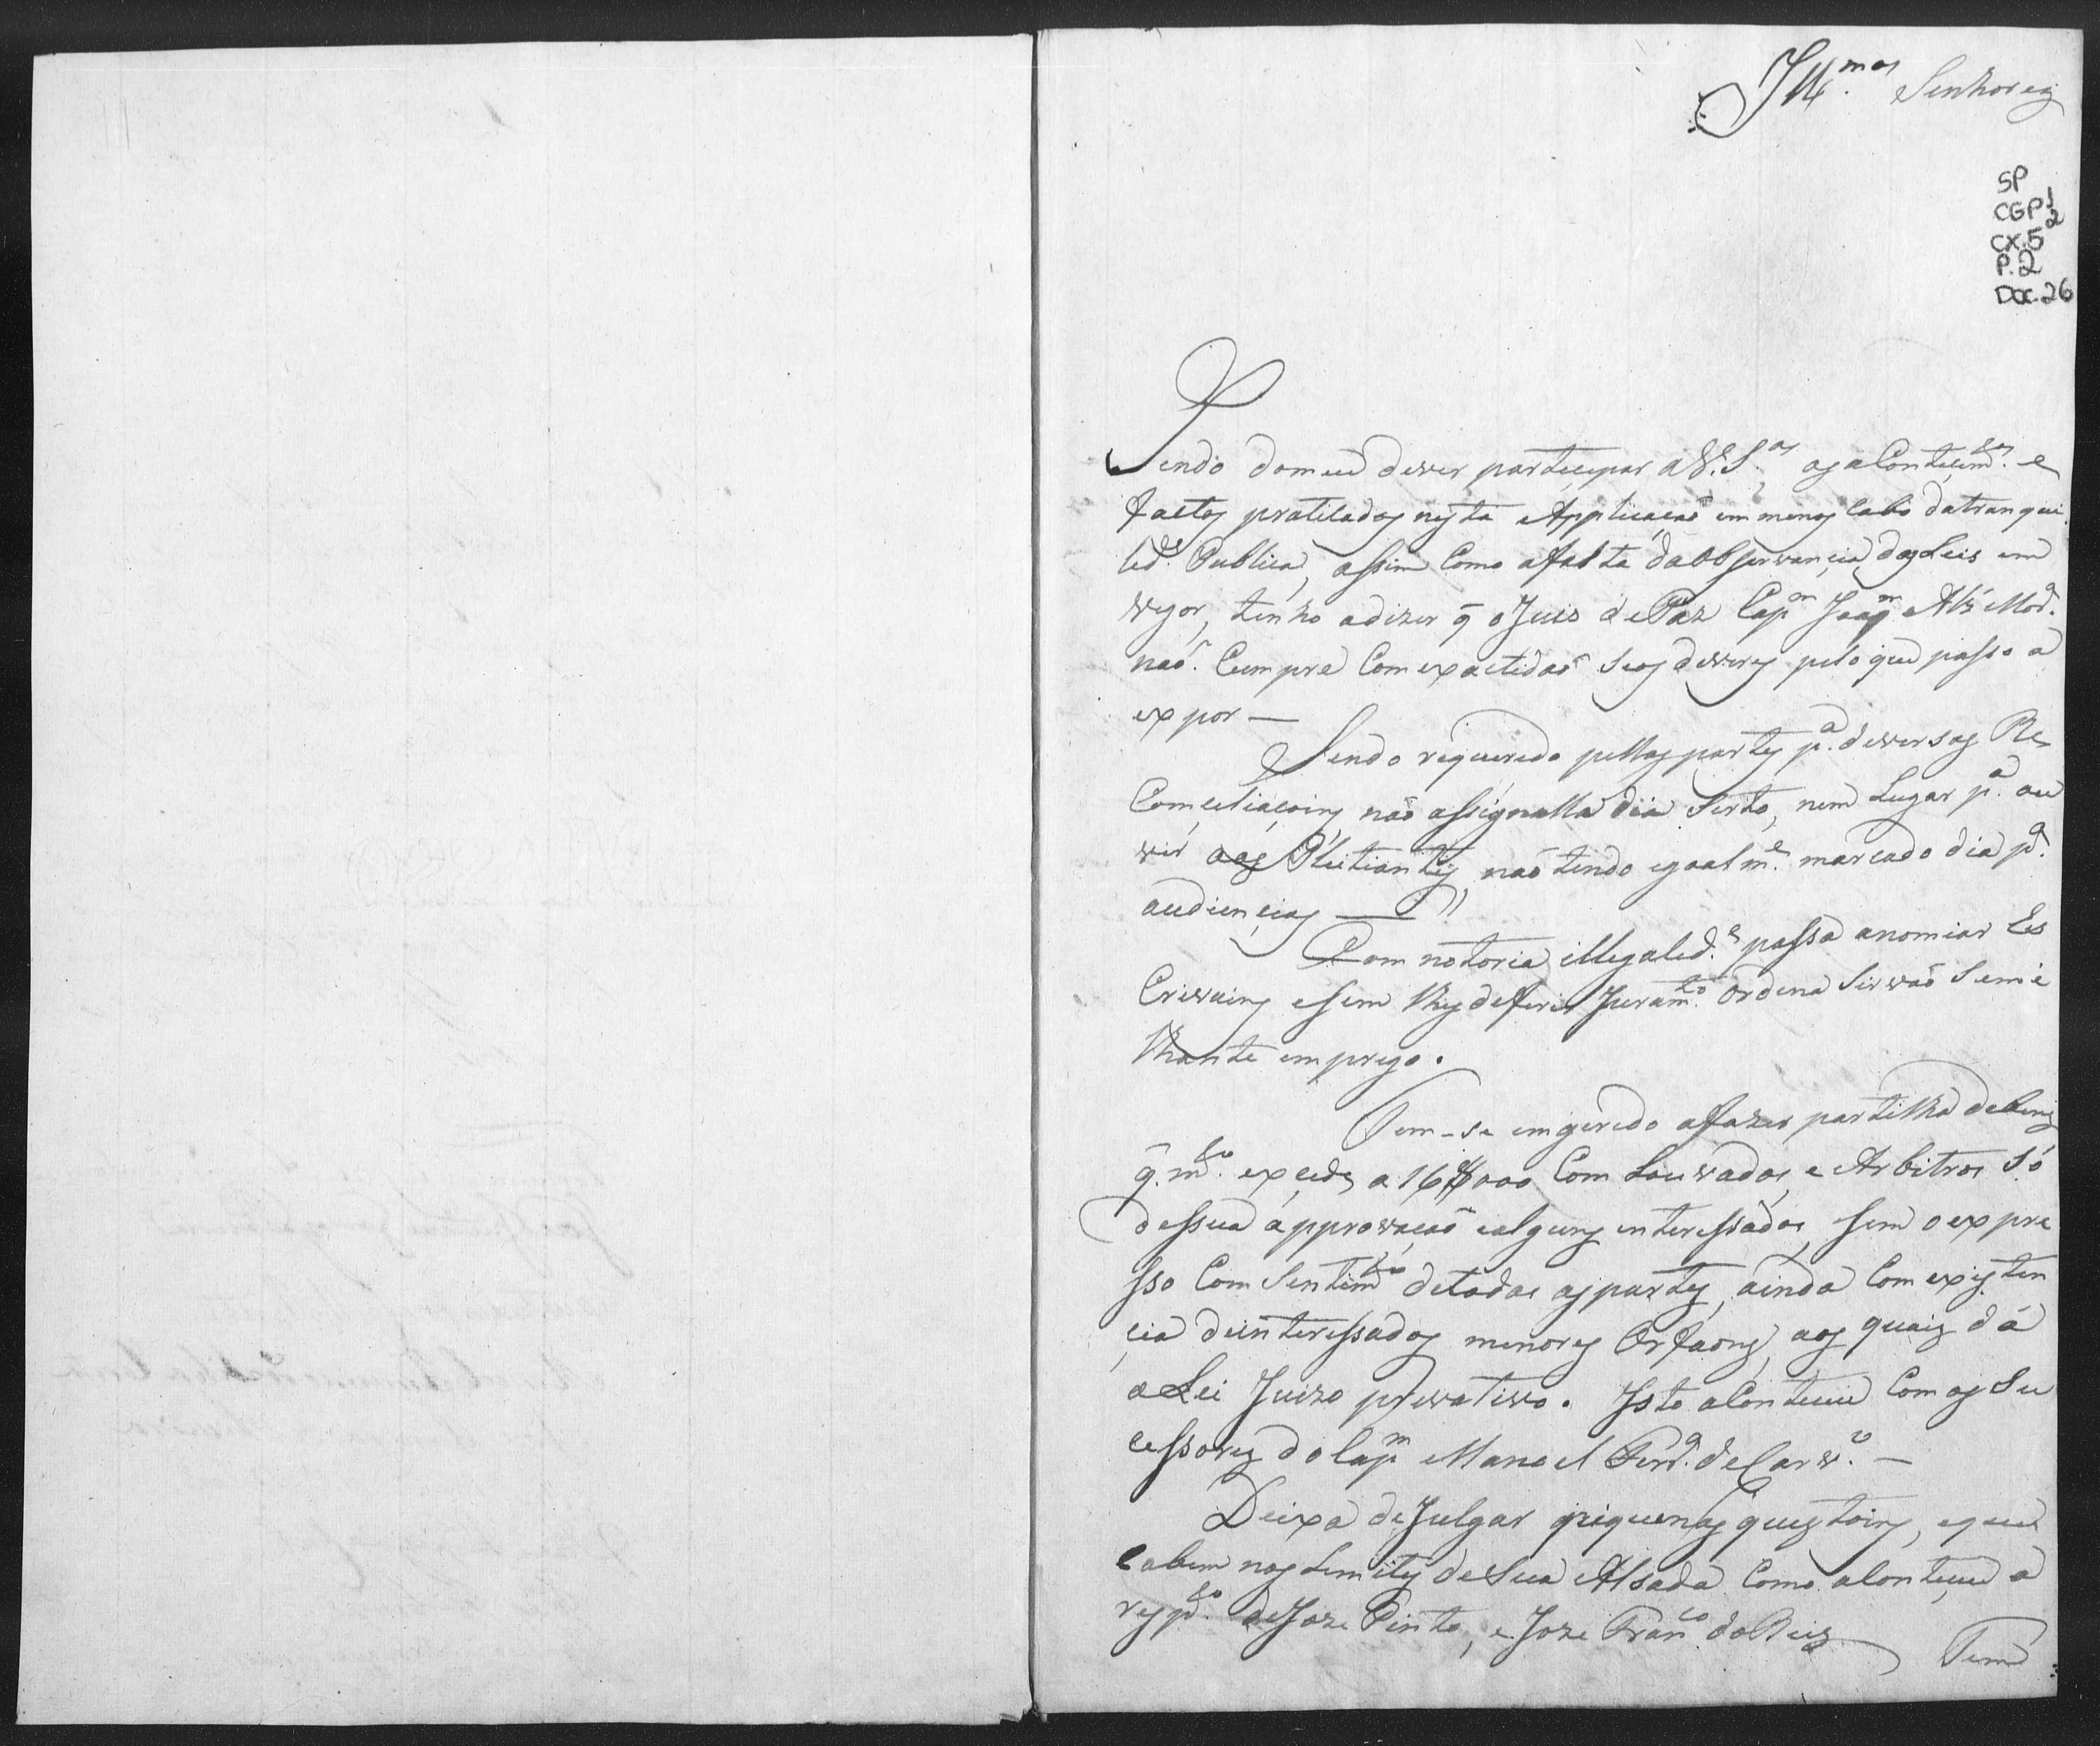 Ill.mos Senhores
SP
CGP1
2
CX.5
P.2
Doc.26
Sendo domeu dever partecipar a V.S.as os aContecim.tos e
factos praticados nesta Applicacaõ em menos cabo datranqui
lid.e Publica, assim Como afalta daObservancia dasLeis em
vigor, tenho adizer q̃ oJuis dePaz Cap.m Joaq.m Alz' Mor.a
naõ Cumpre Comexactidaõ seos deveres peloque passo a
expor —
Sendo requerido pellas partes p.a deversas Re
Comceliacoins naõ assignalla dia Serto, nem Lugar p.a ou
vir aos Pleitiantes, naõ tendo egoalm.e marcado dia p.a
audiencias —
Com notoria illegalid.e passa anomiar Es
Crivains esem lhes deferir Juram.to ordena Sirvaõ Seme
lhante emprego.
Tem-se engerido afazer partilha debens
q̃ m.to excede a 16$000 Com Louvados, e Arbitros Só
dessua approvacaõ ealguns interessados, sem oexpre
sso ComSentim.to detodas aspartes, ainda Comexisten
cia deinteressados menores Orfaons, aos quais dá
aLei Juizo privativo. Isto aConteceu Comos Su
cessores doCap.m Manoel Ferr.a deCarv.o —
Deixa deJulgar piquenas questoins, eque
Cabem nos Limites deSua Alsada Como aConteceu a
resp.to deJoze Pinto, e Joze Fran.co dosReis
Tem